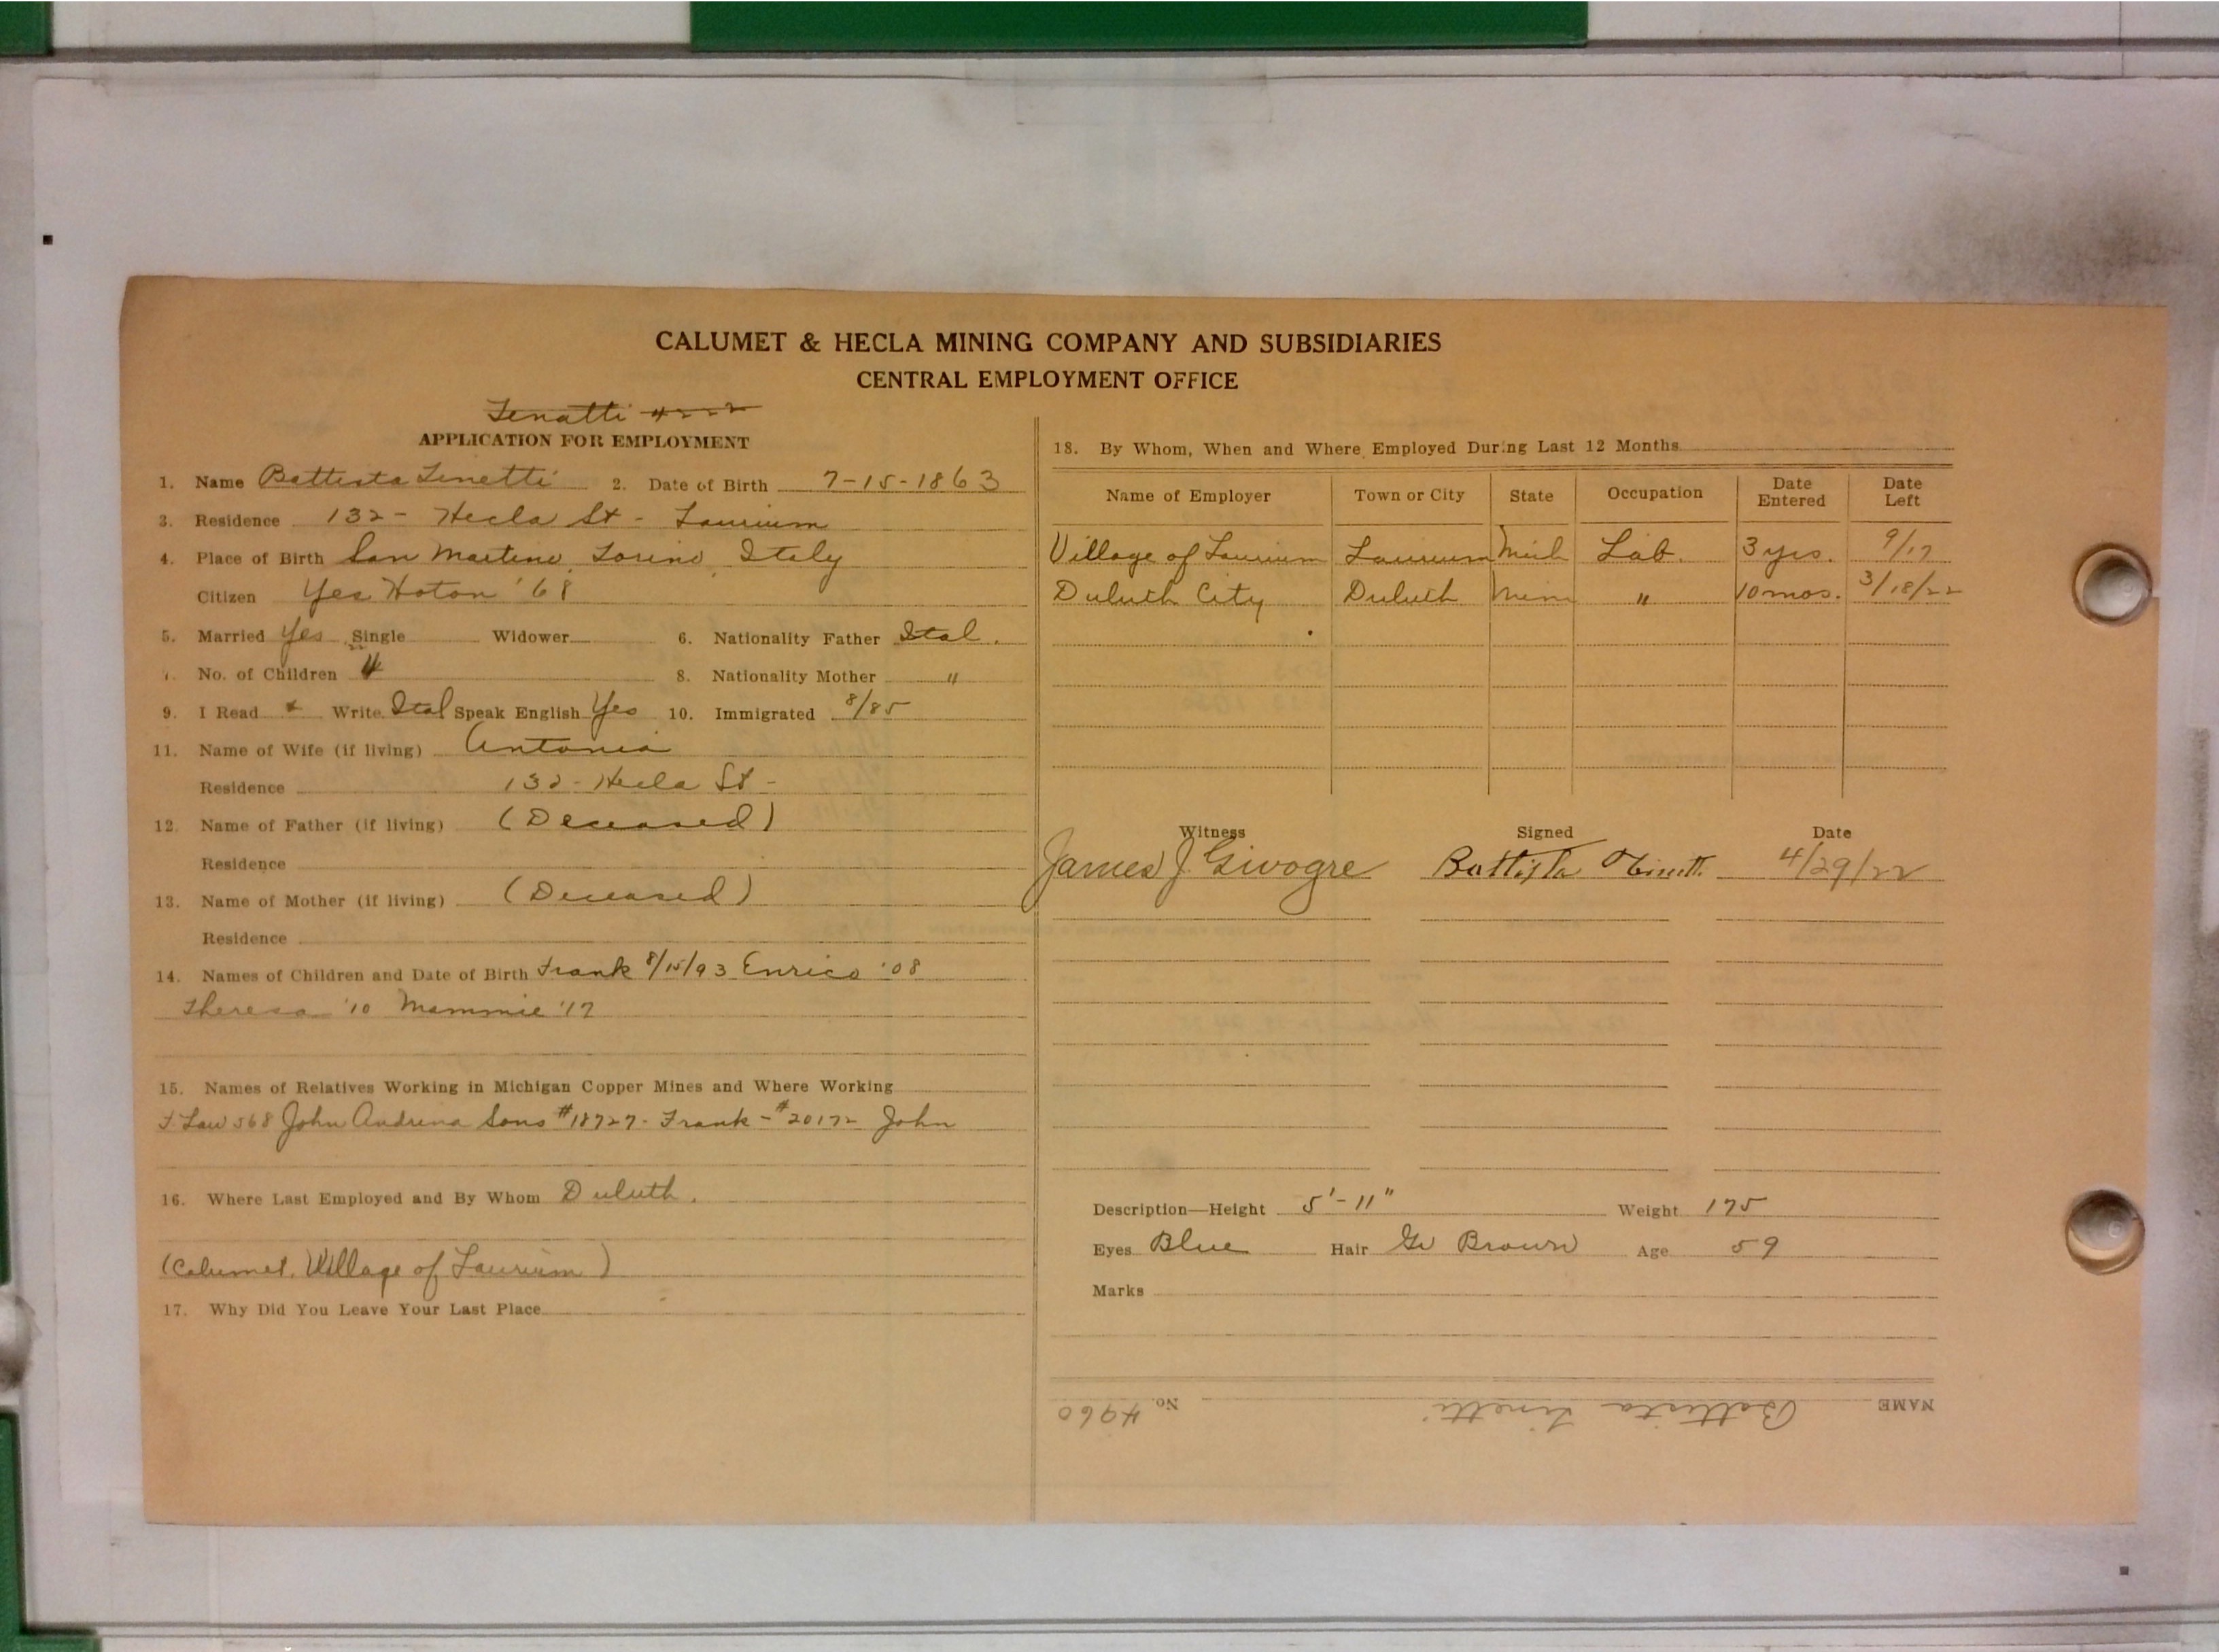 CALUMET & HECLA MINING COMPANY AND SUBSIDIARIES
CENTRAL EMPLOYMENT OFFICE
APPLICATION FOR EMPLOYMENT
1. Name Battista Tinetti 2. Date of Birth 7-15-1863
3. Residence 132 - Hecla St - Laurium
4. Place of Birth San Martino, Torino, Italy
Citizen Yes Hoton '68
5. Married Yes Single Widower 6. Nationality Father Ital.
7. No. of Children 4 8. Nationality Mother "
9. I Read & Write Ital Speak English Yes 10. Immigrated 8/85
11. Name of Wife (if living) Antonia
Residence 132 - Hecla St -
12. Name of Father (if living) (Deceased)
Residence
13. Name of Mother (if living) (Deceased)
Residence
14. Names of Children and Date of Birth Frank 8/15/93 Enrico '08
Theresa '10 Mammie '17
15. Names of Relatives Working in Michigan Copper Mines and Where Working
F. Law 568 John Andrena Sons #18727 - Frank - #20172 John
16. Where Last Employed and By Whom Duluth.
(Calumet, Village of Laurium)
17. Why Did You Leave Your Last Place
18. By Whom, When and Where Employed During Last 12 Months
Name of Employer Town or City State Occupation Date Entered Date Left
Village of Laurium Laurium Mich Lab. 3 yrs. 9/17
Duluth City Duluth Minn " 10 mos. 3/18/22
Witness Signed Date
James J. Givogre Battista 4/29/22
Description—Height 5'-11" Weight 175
Eyes Blue Hair Gr Brown Age 59
Marks
NAME Battista Tinetti No. 4960